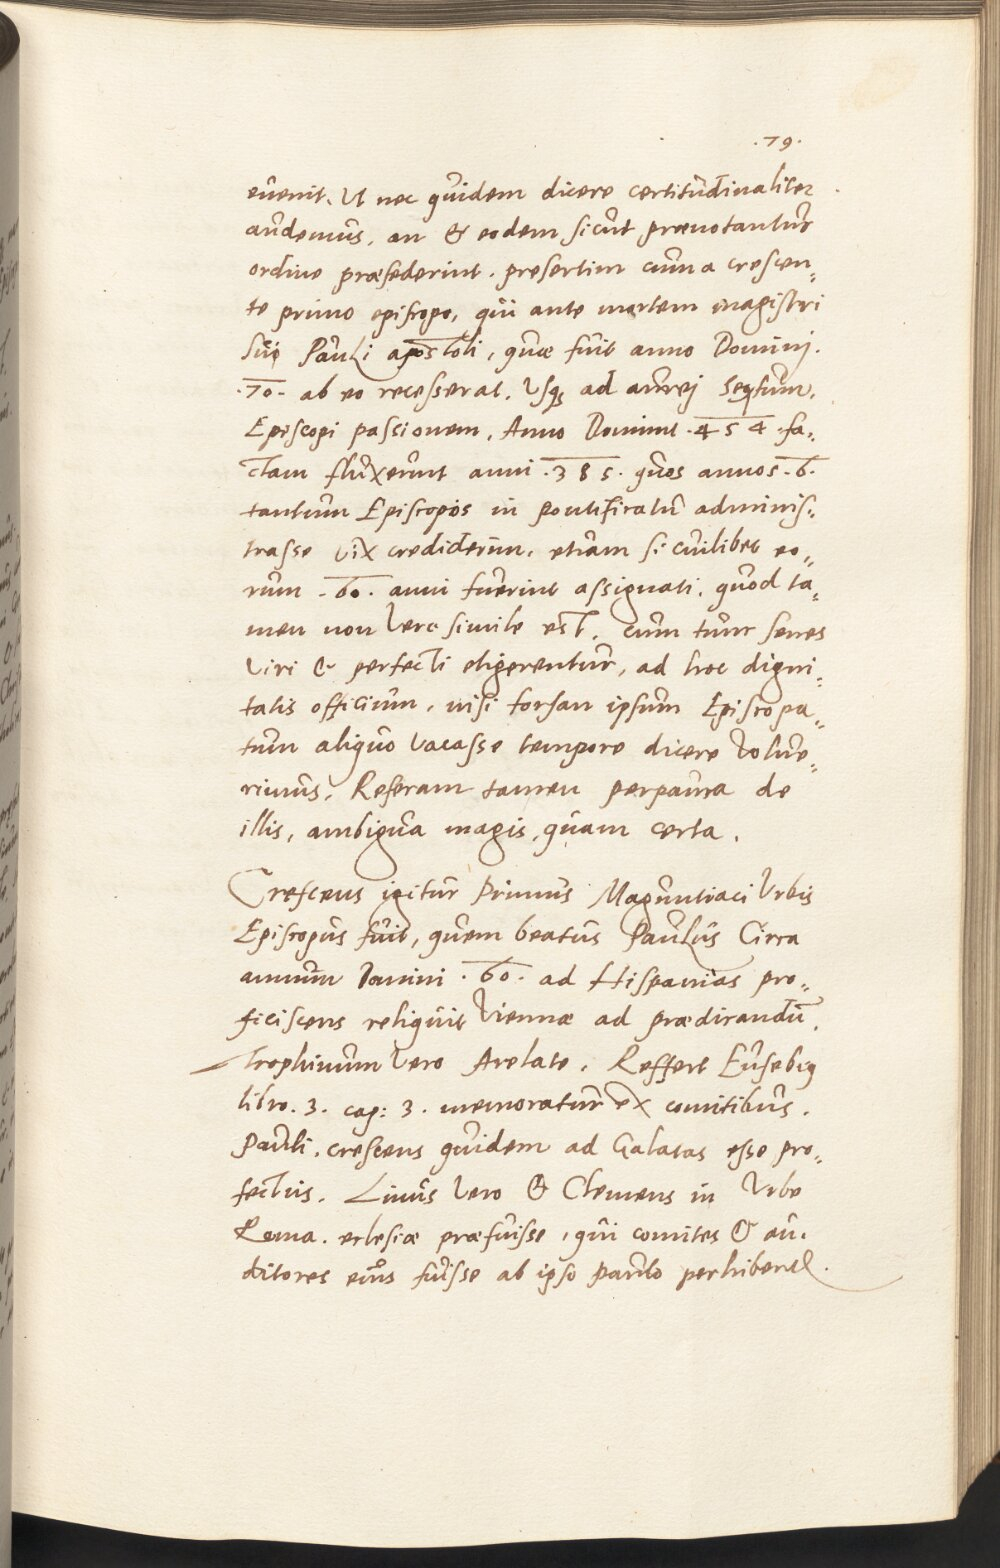 .79.
euenit. Ut nec quidem dicere certitudinaliter
audemus, an & eodem sicut prænotantur
ordine præsederint. presertim cum a crescen„
te primo episcopo, qui ante mortem magistri
sui Pauli apostoli, quæ fuit anno Dominj.
.70. ab eo recesserat. Usq; ad aurej Septum.
Episcopi passionem, Anno Domini .454. fa„
ctam fluxerunt anni .385. quos annos .6.
tantum Episcopos in pontificatu adminis„
trasse vix crediderim, etiam si cuilibet eo„
rum .60. anni fuerint assignati, quod ta„
men non Vero simile est. cum tunc senes
Viri & perfecti eligerentur, ad hoc digni„
tatis officium, nisi forsan ipsum Episcopa„
tum aliquo vacasse tempore dicere Volue„
rimus. Referam tamen perpauca de
illis, ambigua magis, quam certa.
Crescens igitur Primus Maguntiaci Vrbis
Episcopus fuit, quem beatus Paulus Circa
annum Domini .60. ad Hispanias pro„
ficiscens reliquit Viennæ ad prædicandū.
Trophimum Vero Arelate. Reffert Eusebiꝰ
libro. 3. cap: 3. memoratur ex comitibus.
Pauli. crescens quidem ad Galatas esse pro„
fectus. Linus Vero & Clemens in Vrbe
Roma. eclesiæ præfuisse, qui comites & au„
ditores eius fuisse ab ipso Paulo perhibentꝛ.